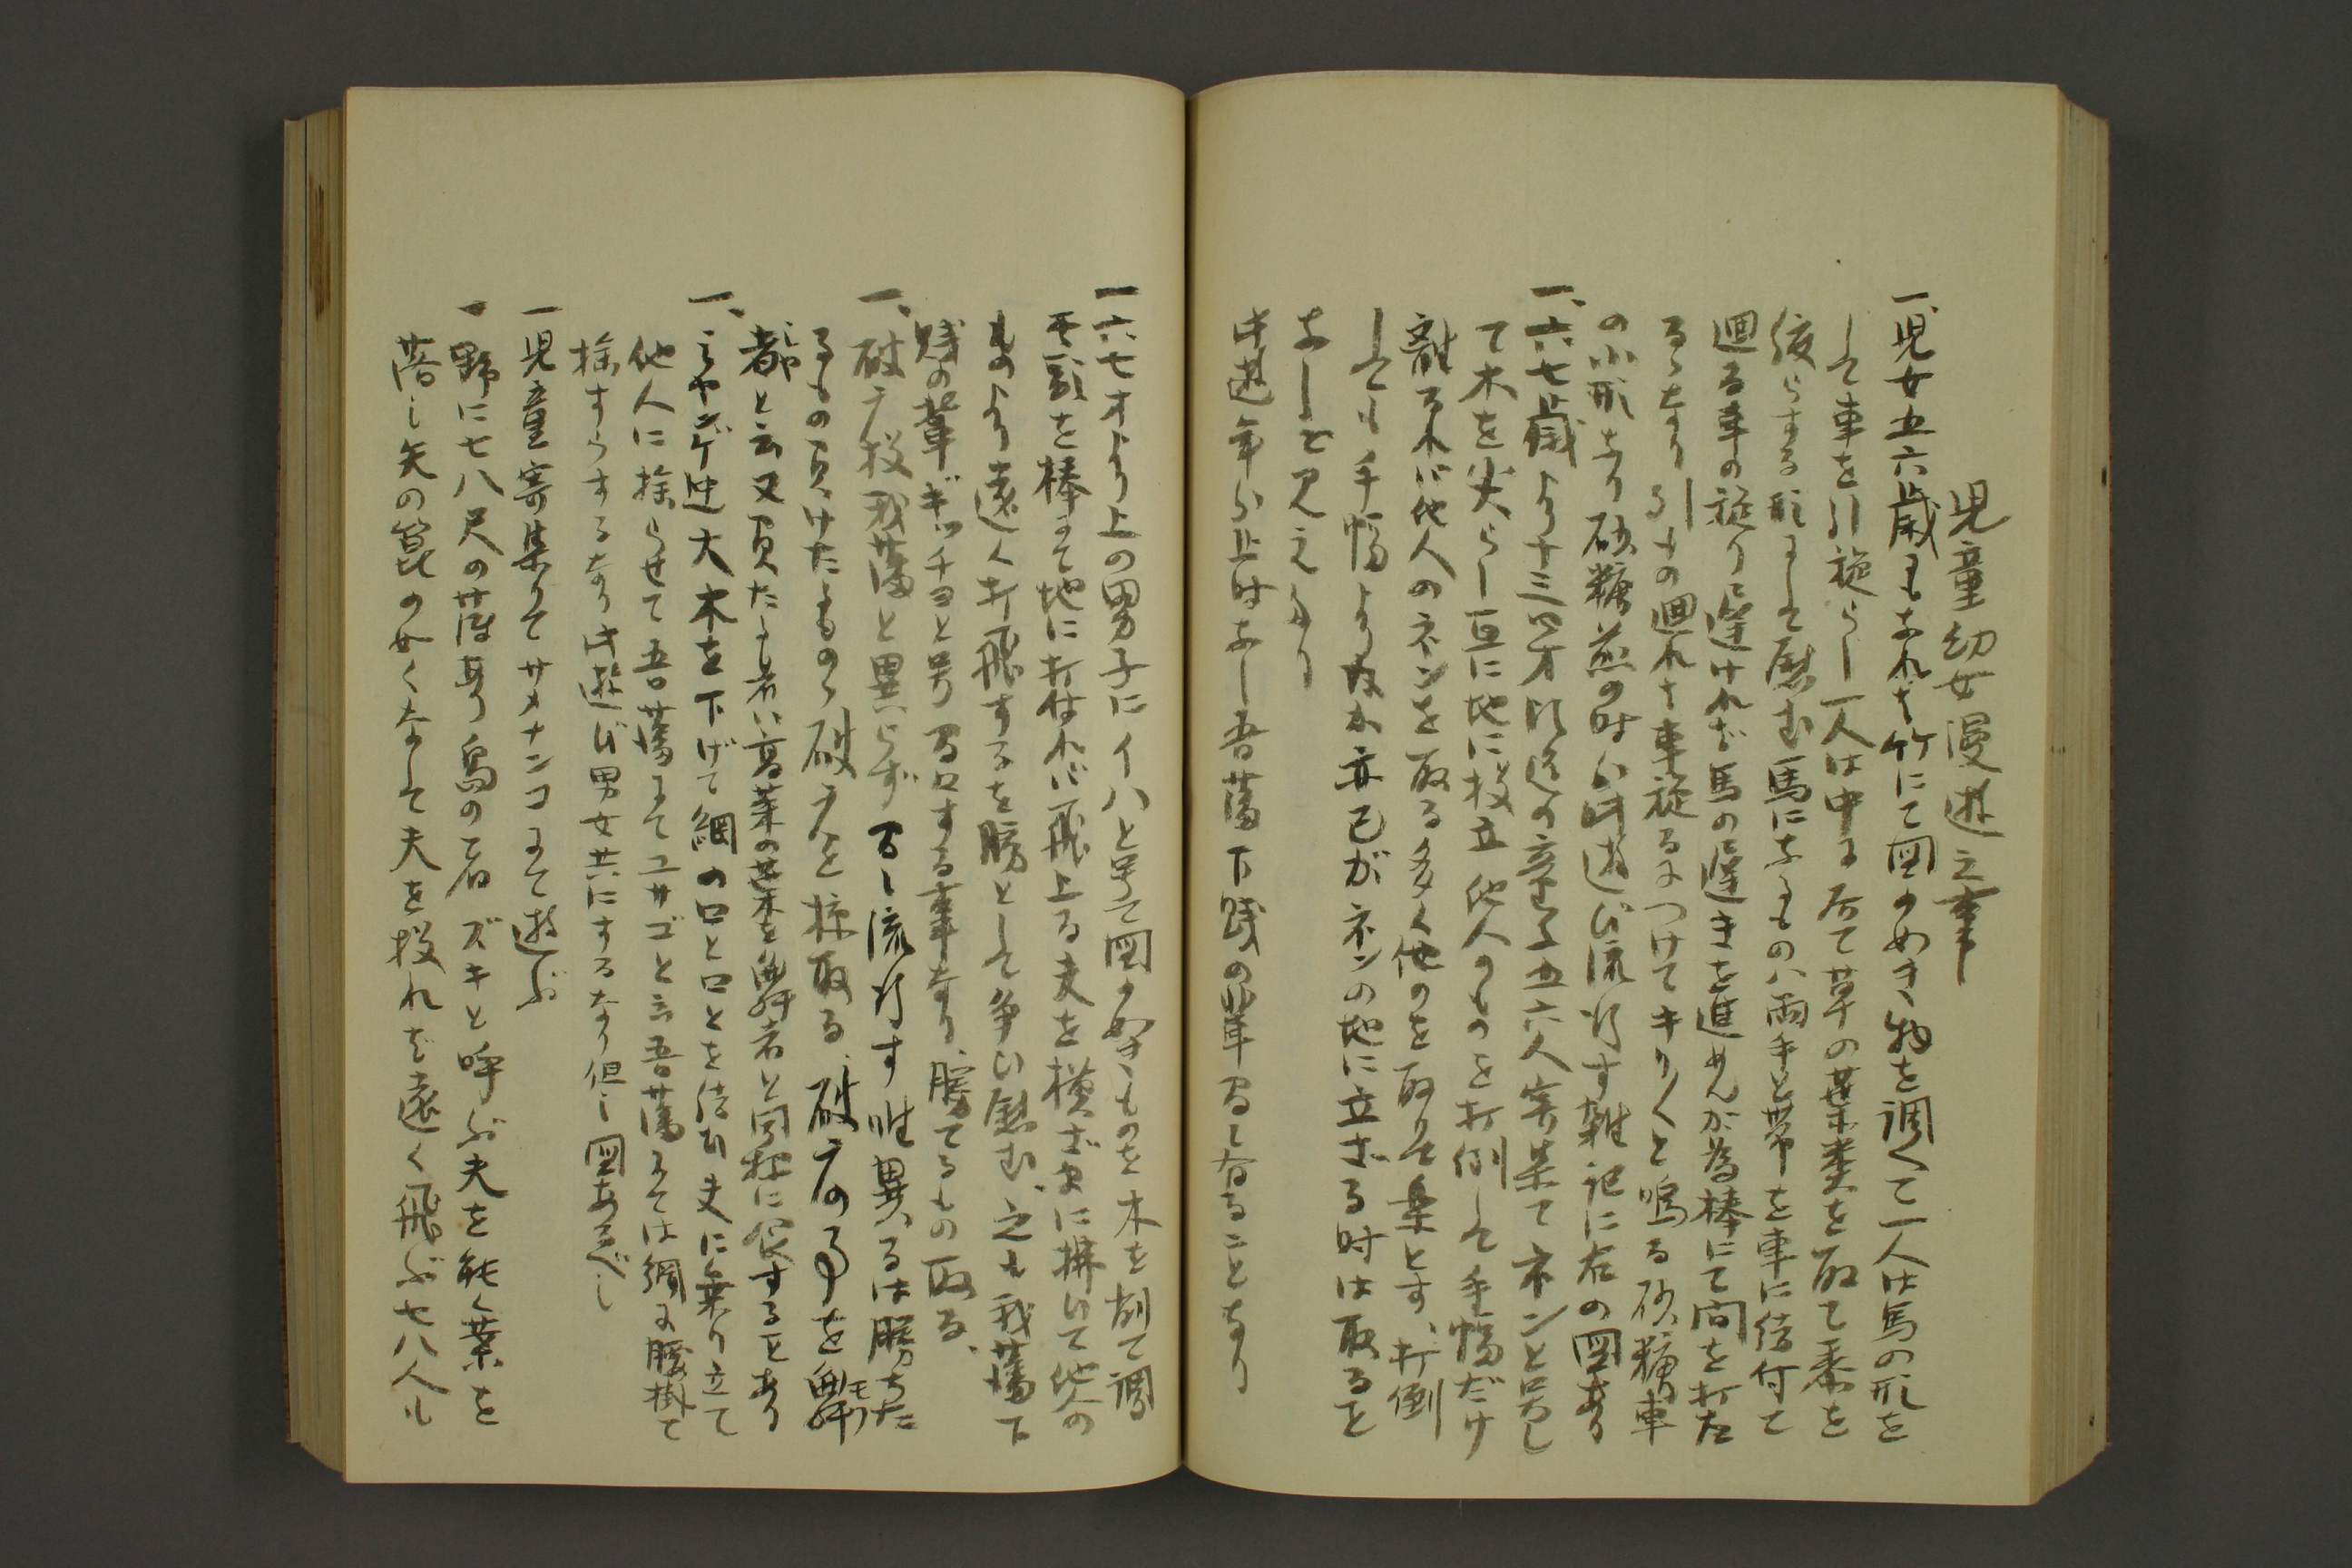 児童幼女漫遊之事
一、児女五六歳にもなれば竹にて図の如き物を調へて一人は馬の形を
して車を引旋らし一人は中に居て草の葉類を取て黍を
絞らする形にして慰む馬になるものハ両手と帯を車に結付て
廻る車の旋りに遅ければ馬の遅きを進めんが為棒にて間を打た
るゝなり引もの廻れば車旋るにつけてキリ〱と鳴る砂糖車
の小形なり砂糖煎の時分此遊び流行す雑記に右の図あり
一、六七歳より十三四才以迄の童子五六人寄集てネンと号し
て木を尖らし互に地に投立他人のものを打倒して手幅だけ
離るれば他人のネンを取る多く他のを取りて楽とす、打倒
しても手幅より及か亦己がネンの地に立ざる時は取ること
なしと見えたり
此遊年分止時なし吾藩下賎の輩間々有ることなり
一六七才より上の男子にイハと号て図の如きものを木を削て調
其頭を棒にて地に打付れば飛上る夫を横ざまに拂いて他人の
ものより遠く打飛するを勝として争い慰む、之も我藩下
賎の輩ギッチョと号間々する事なり、勝てるもの取る、
一、破广投我藩と異らず間々流行す唯異るは勝ちた
るもの負けたるものゝ破广を掠取る、破广の事を
都と云又負たる者ハ高菜の葉を 者と同称に食することあり
一、ミヤンゲ迚大木を下げて綱の口と口とを結ひ夫に乗り立て
他人に捨らせて吾藩にてユサゴと云吾藩にては綱に腰掛て
捨すらするなり此遊び男女共にするなり但し図あるべし
一児童寄集りてサメナンコにて遊ぶ
一野に七八尺の薄あり島の者ズキと呼ぶ夫を能く葉を
落し矢の箆の如くなして夫を投れば遠く飛ぶ七八人も